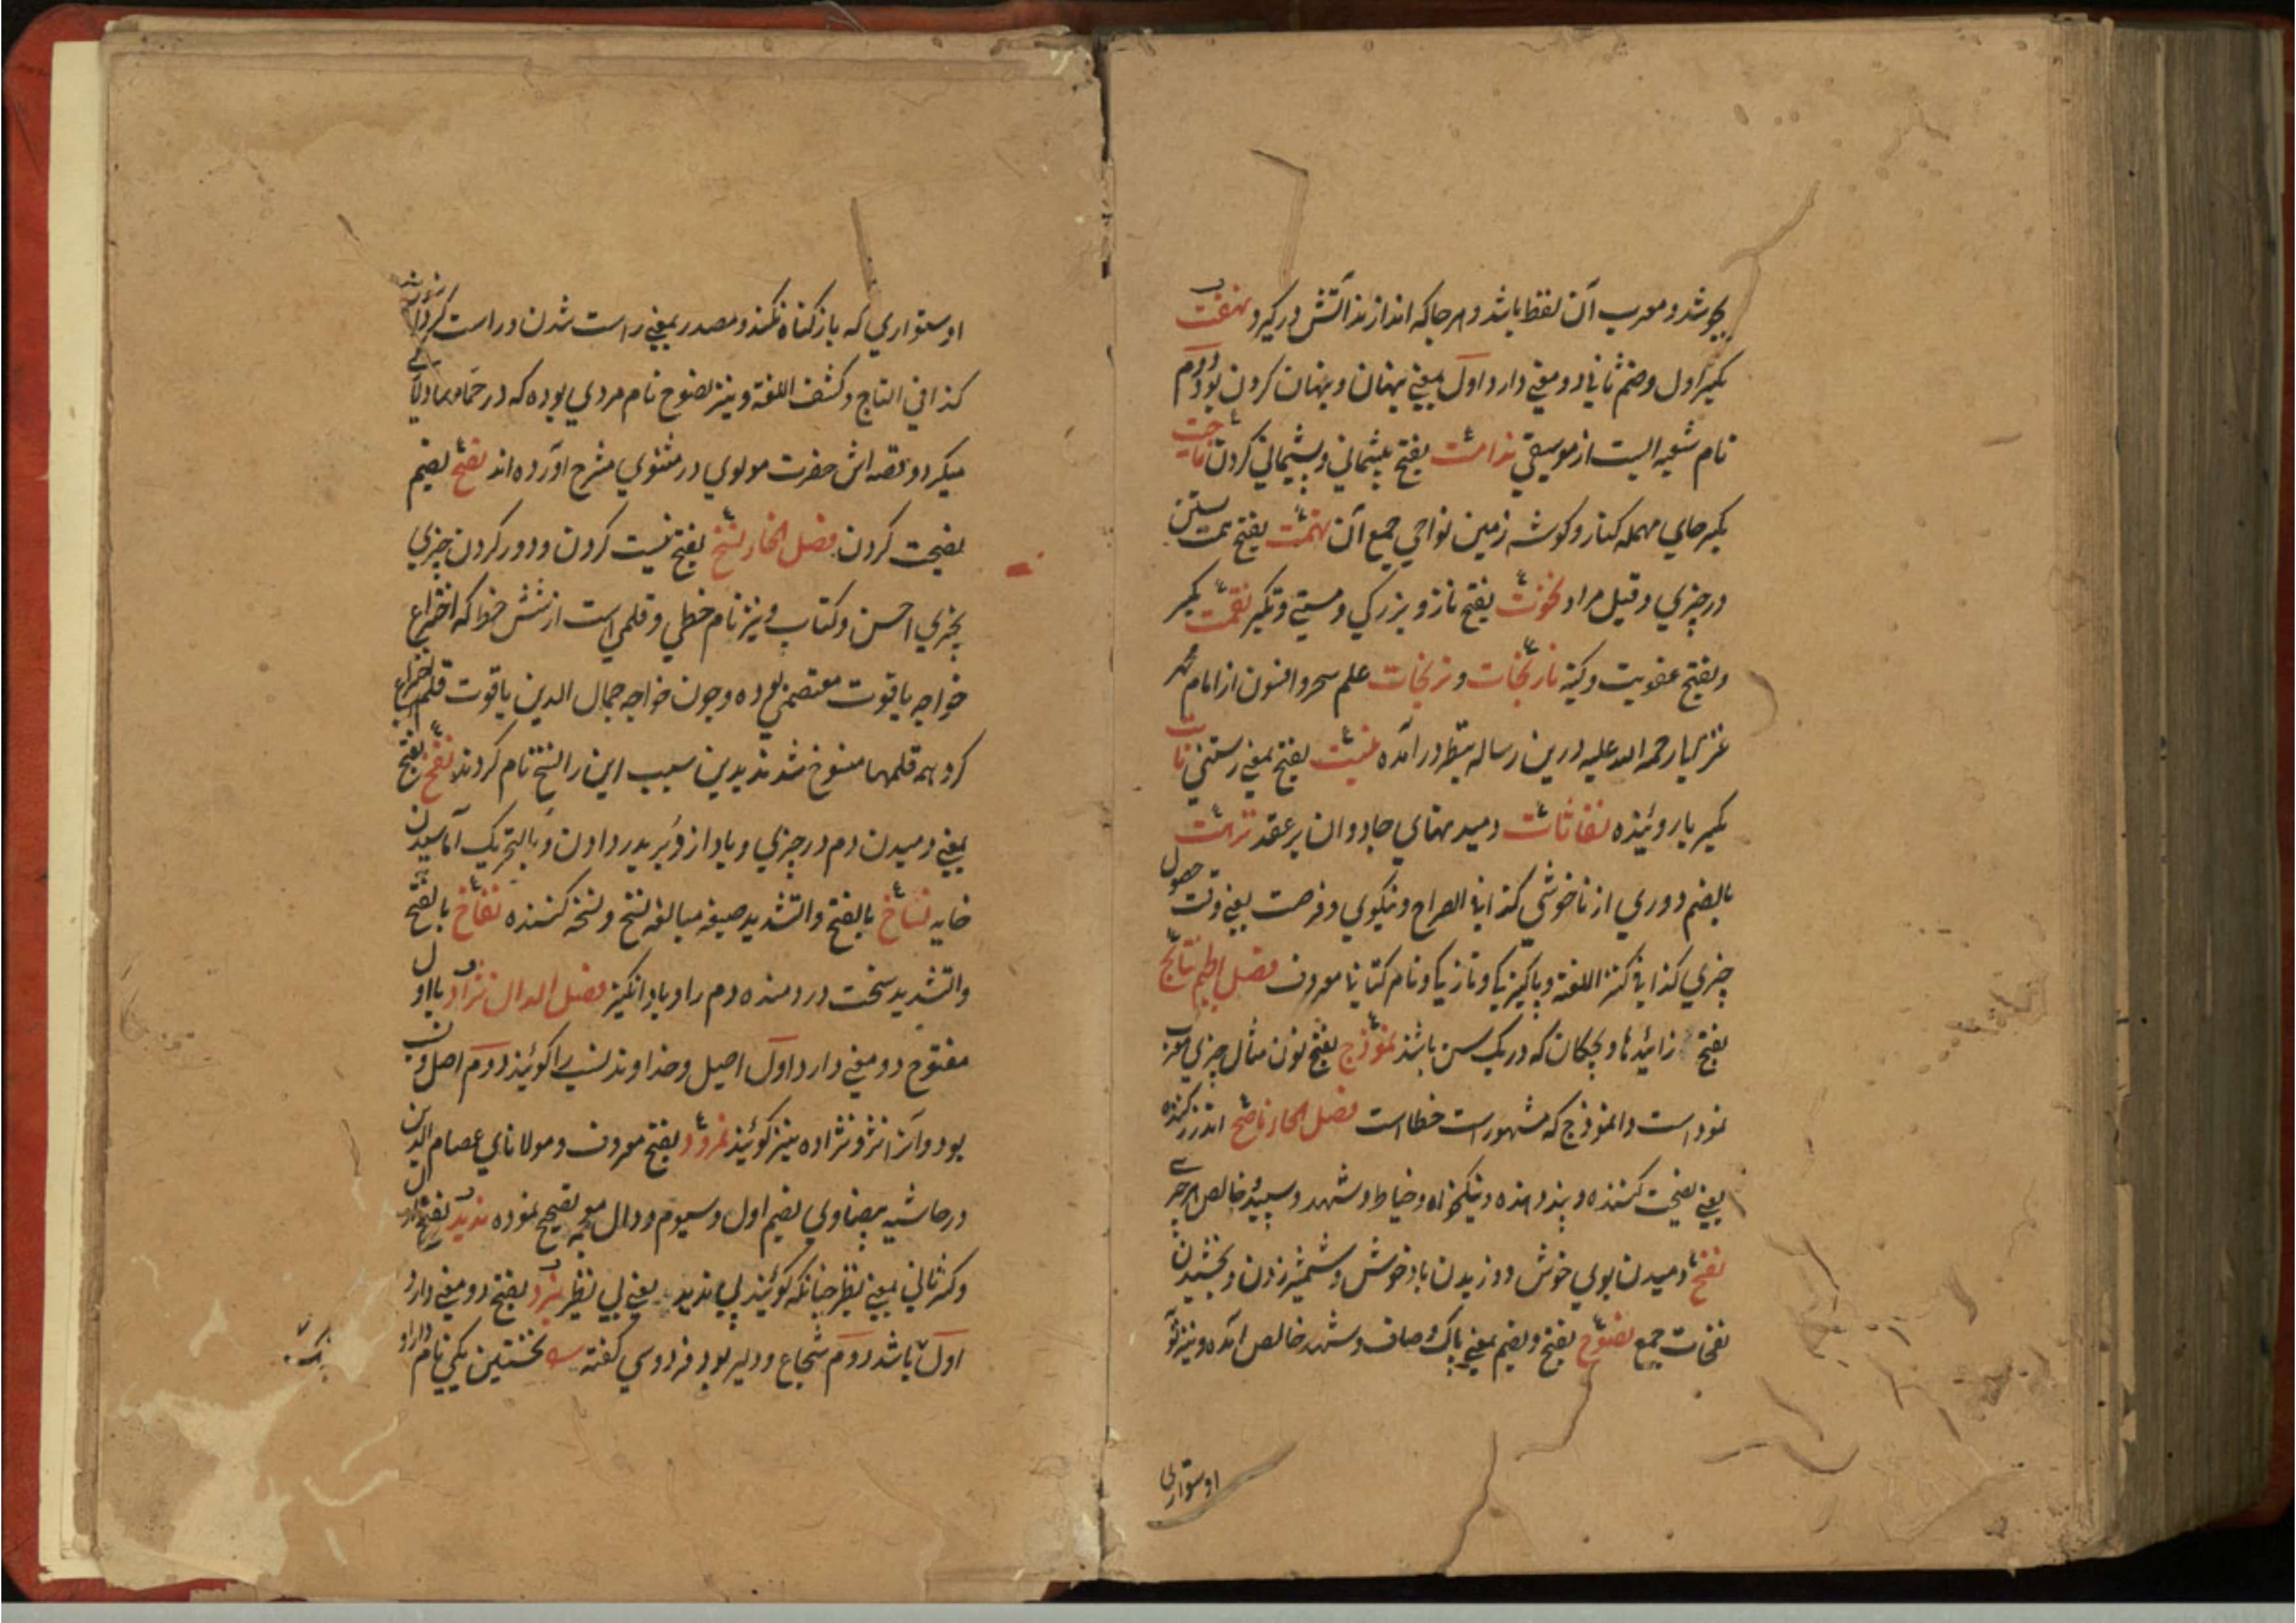 بجوشد و معرب آن نفط باشد و هر جا که اندازند آتش درگیرد نهفت
بکسر اول و ضم ثانی دو معنی دارد اول بمعنی پنهان و پنهان کردن بود دوم
نام شعبه ایست از موسیقی ندامت بفتح پشیمانی و پشیمانی کردن ناحیت
بکسر حای مهمله کنار و گوشه زمین نواحی جمع آن نهمت بفتح همت بستن
در چیزی و قیل مراد نخوت بفتح ناز و بزرگی و مستی و تکبر نقمت بکسر
و بفتح عقوبت و کینه نارنجات و نیرنجات علم سحر و افسون از امام محمد
غزالی رحمه الله علیه درین رساله بنظر در آمده نبت بفتح بمعنی رستنی نابت
بکسر با روینده نفاثات دمیدنهای جادوان بر عقد نزهت
بالضم دوری از ناخوشی کذا فی الصراح و نیکوی و فرصت یعنی وقت حصول
چیزی کذا فی کنز اللغة و پاکیزگی و تازگی و نام کتابی معروف فصل الجیم نتائج
بفتح زائیدها و بچگان که در یک سن باشند نموذج بفتح نون مثال چیزی معرب
نمود است و انموذج که مشهور است خطا است فصل الحاء ناصح اندرز کننده
یعنی نصیحت کننده و پند دهنده و نیکخواه و خیاط و شهد و سپید خالص از هر چیزی
نفح دمیدن بوی خوش و وزیدن باد خوش و شمشیر زدن و بخشیدن
نفحات جمع نصوح بفتح و بضم بمعنی پاک و صاف و شهد خالص آمده و نیز توبه
اوستواری
اوستواری که باز گناه نکند و مصدر بمعنی راست شدن و راست کردن
کذا فی التاج و کشف اللغة و نیز نصوح نام مردی بوده که در حمامها دلاکی
میکرد و قصه اش حضرت مولوی در مثنوی مشرح آورده اند نصح بضم
نصیحت کردن فصل الخاء نسخ بفتح نیست کردن و دور کردن چیزی
بچیزی احسن و کتاب و نیز نام خطی و قلمی است از شش خط که اختراع
خواجه یاقوت معتصمی بوده و چون خواجه جمال الدین یاقوت قلم اختراع
کرد همه قلمها منسوخ شدند بدین سبب این را نسخ نام کردند نفخ بفتح
بمعنی دمیدن دم در چیزی و باد از و بالتحریک آماسیدن
خایه نساخ بالفتح والتشدید صیغه مبالغه نسخ و نسخه کننده نفاخ بالفتح
والتشدید سخت دردمنده دم را و باد انگیز فصل الدال نژاد با اول
مفتوح دو معنی دارد اول اصیل و خداوند نسب را گویند دوم اصل و نسب
بود و آنرا نژ و نژاده نیز گویند نمرود بفتح معروف و مولانای عصام الدین
در حاشیه بیضاوی بضم اول و سیوم و دال معجمه تصحیح نموده ندید بفتح اول
و کسر ثانی بمعنی نظیر چنانکه گویند بی ندید یعنی بی نظیر نبرد بفتح دو معنی دارد
اول باشد دوم شجاع و دلیر بود فردوسی گفته نخستین یکی نام